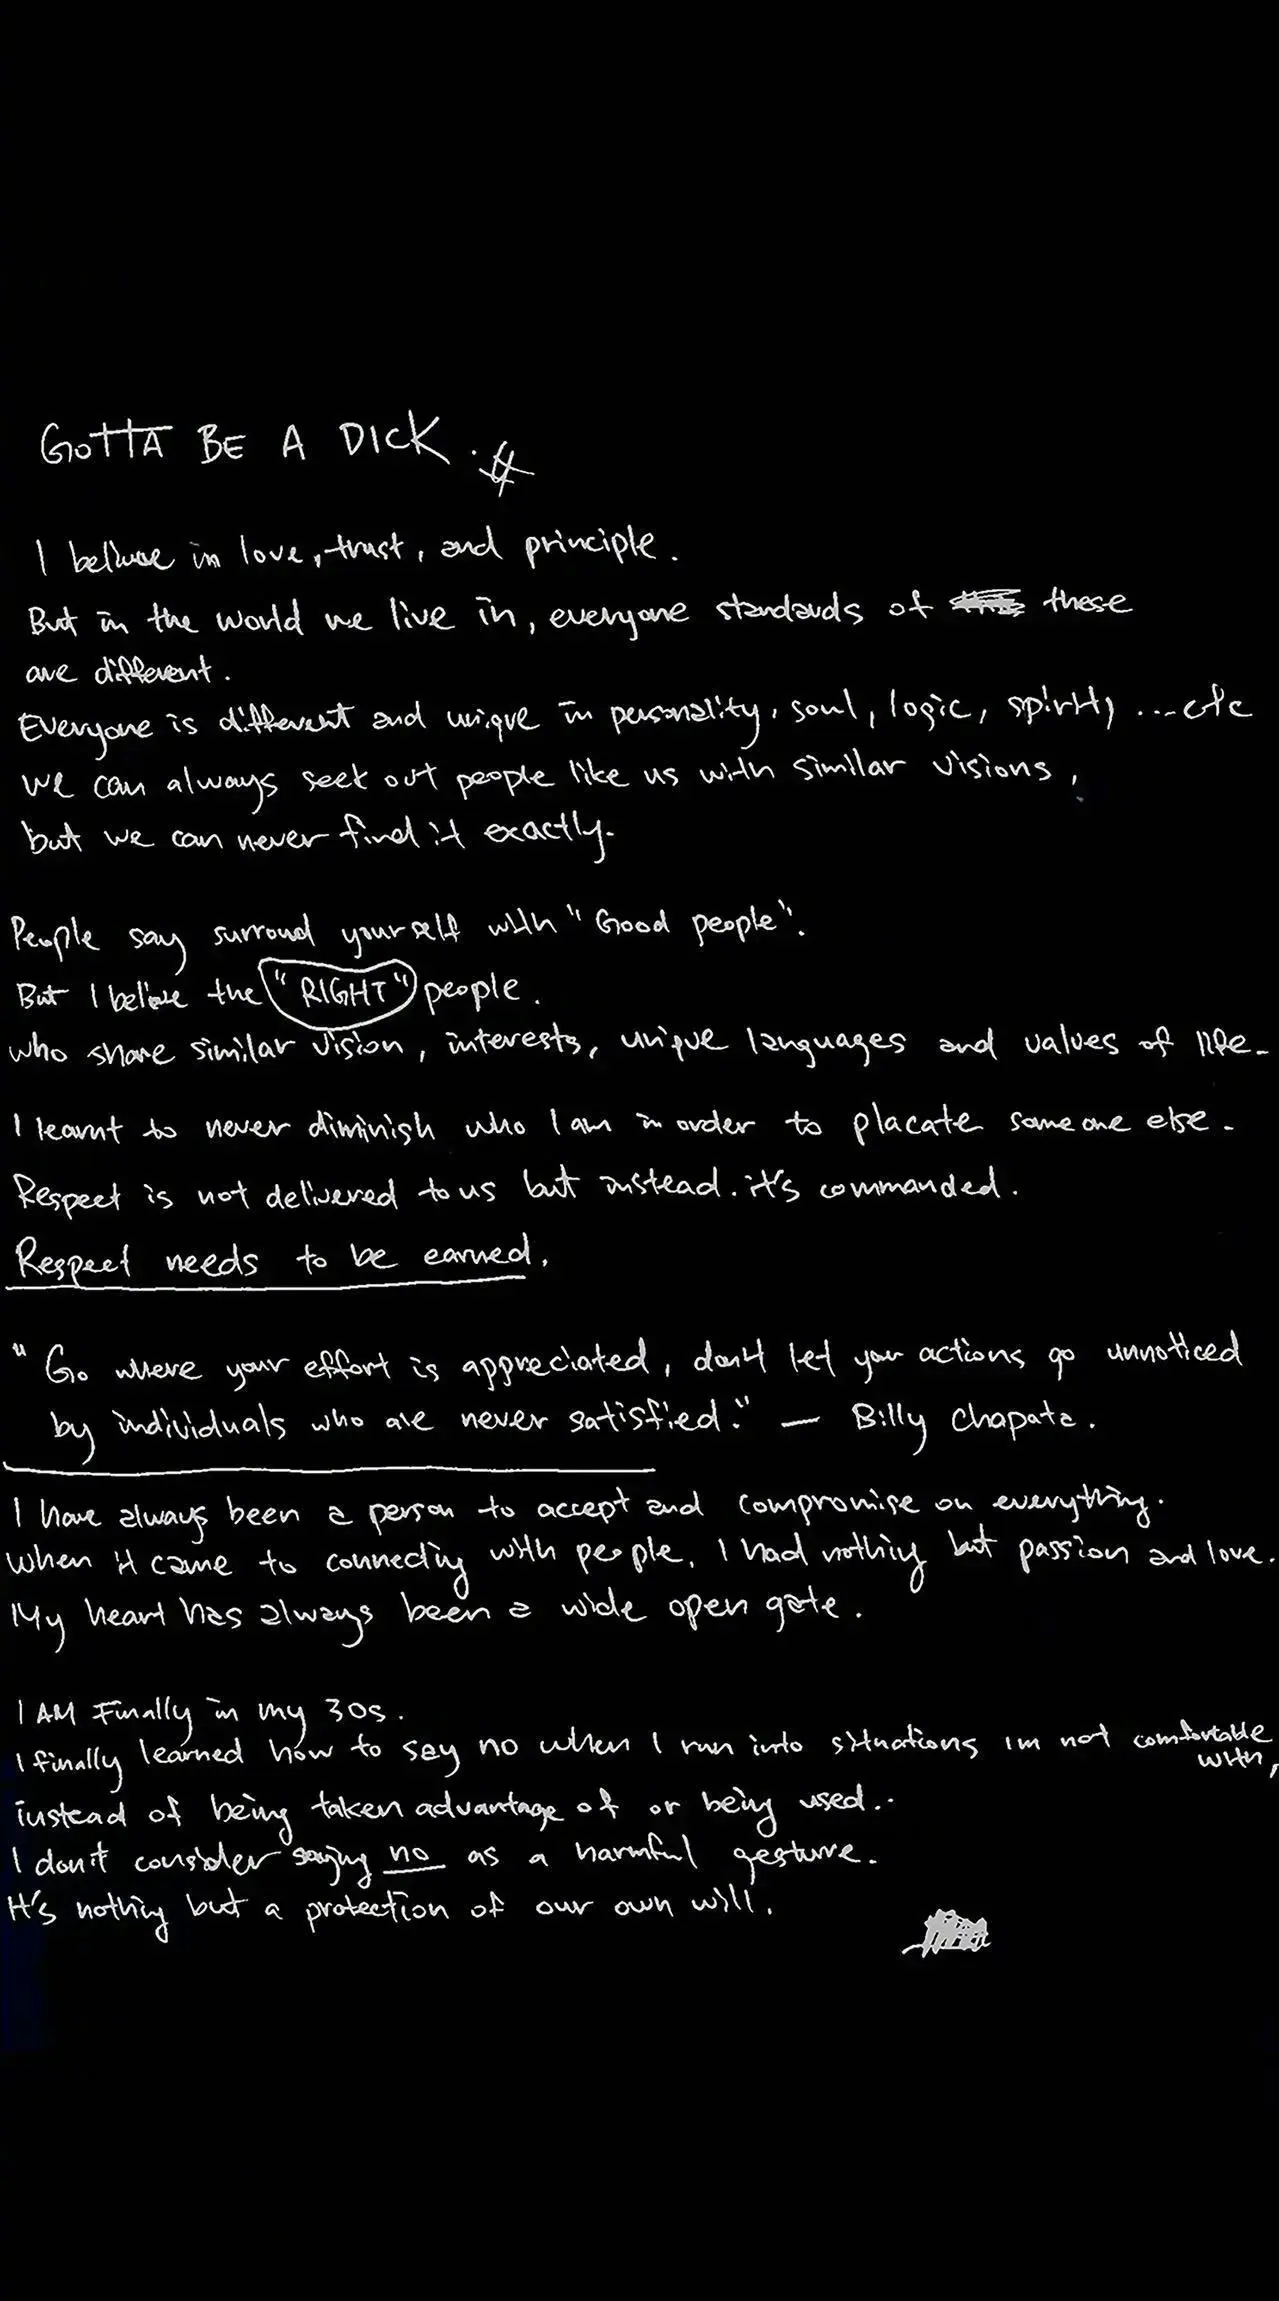 GOTTA BE A DICK.
I believe in love, trust, and principle.
But in the world we live in, everyone standards of these
are different.
Everyone is different and unique in personality, soul, logic, spirit, ...etc
we can always seek out people like us with similar visions,
but we can never find it exactly.
People say surround yourself with "Good people".
But I believe the "RIGHT" people.
who share similar vision, interests, unique languages and values of life.
I learnt to never diminish who I am in order to placate someone else.
Respect is not delivered to us but instead. it's commanded.
Respect needs to be earned.
"Go where your effort is appreciated, don't let your actions go unnoticed
by individuals who are never satisfied." — Billy Chapata.
I have always been a person to accept and compromise on everything.
when it came to connecting with people, I had nothing but passion and love.
My heart has always been a wide open gate.
I AM Finally in my 30s.
I finally learned how to say no when I run into situations im not comfortable
with,
instead of being taken advantage of or being used..
I don't consider saying no as a harmful gesture.
It's nothing but a protection of our own will.